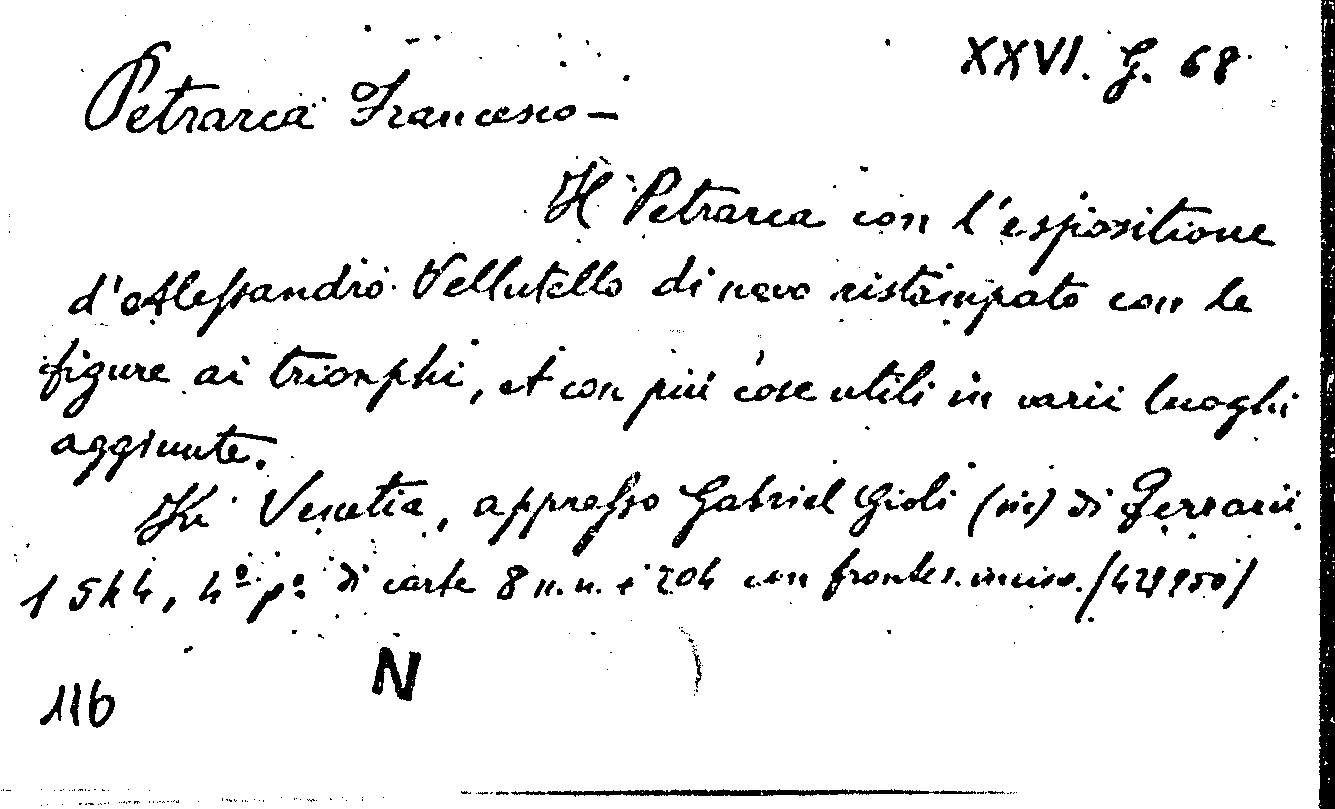 XXVI. G. 68
Petrarca Francesco —
Il Petrarca con l'espositione
d'Alessandro Vellutello di novo ristampato con le
figure ai trionphi, et con più cose utili in varii luoghi
aggiunte.
In Venetia, appresso Gabriel Gioli (sic) di Ferrarii,
1544, 4º pº. di carte 8 n. n. e 204 con frontes. inciso.
116
N